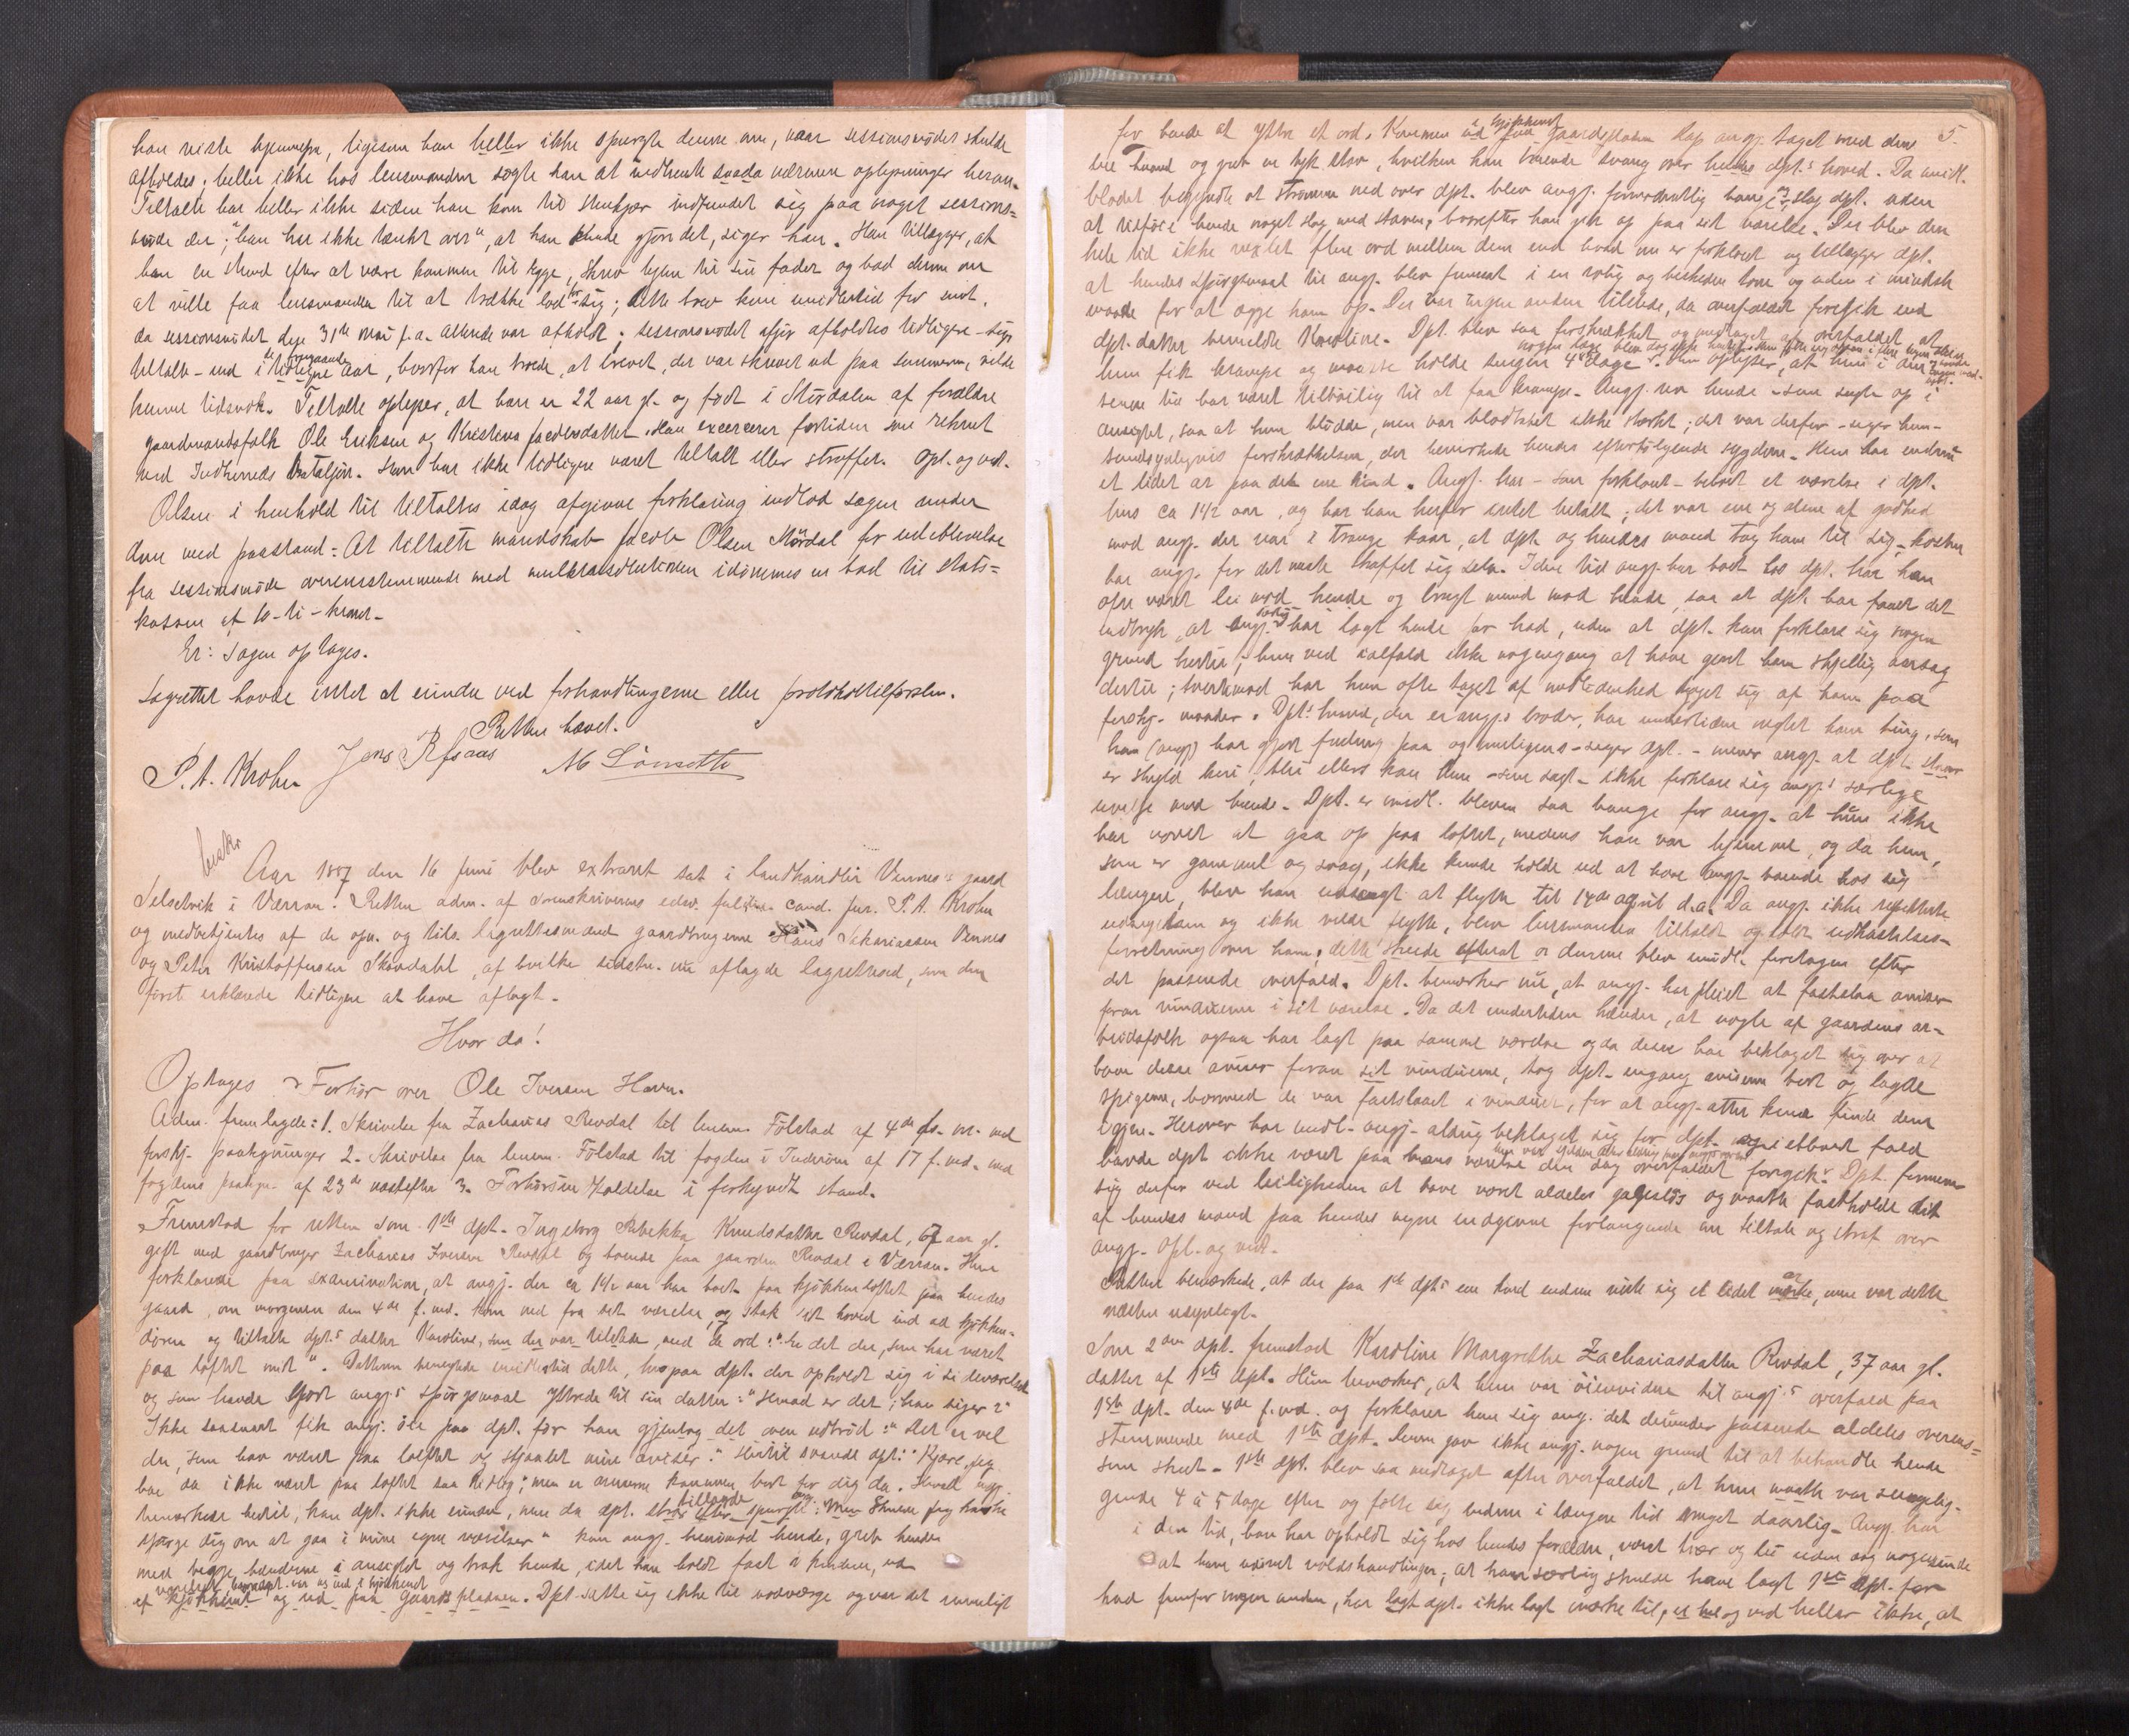 han reiste hjemmefra, ligesom han heller ikke spurgte denne om, naar sessionsmødet skulde
afholdes; heller ikke hos lensmanden søgte han at indhente saada nærmere oplysninger herom.
Tiltalte har heller ikke siden han kom til Stenkjær indfundet sig paa noget sessions=
møde der; "han har ikke tænkt over", at han kunde gjøre det, siger han. Han tillægger, at
han en stund efter at være kommen til Egge, skrev hjem til sin fader og bad denne om
at ville faa lensmanden til at trække lod for sig; dette brev kom imidlertid for sent,
da sessionsmødet dge 31te mai f.a. allerede var afholdt; sessionsmødet afgir afholdtes tidligere - siger
tiltalte - end i de foregaaende aar, hvorfor han troede, at brevet, der var skrevet ud paa sommeren, vilde
komme tidsnok. Tiltalte oplyser, at han er 22 aar gl. og født i Størdalen af forældre
gaardmandsfolk Ole Eriksen og Kristina Jacobsdatter. Han excercerer fortiden som rekrut
ved Indherreds bataljon. Han har ikke tidligere været tiltalt eller straffet. Opl. og ved.
Olsen i henhold til tiltaltes idag afgivne forklaring indlod sagen under
dom med paastand: At tiltalte mandskab Jacob Olsen Størdal for udeblivelse
fra sessionsmøde overensstemmende med mulktsresolutionen idømmes en bod til stats=
kassen af 10 - ti - kroner.
Er: Sagen optages.
Lagrettet havde intet at erindre ved forhandlingerne eller protokoltilførslen.
Retten hævet.
P. A. Krohn Jens Refsaas M Lönsetth
Aar 1887 den 16 Juni blev extraret sat i landhandler Vennes's gaard
Selsetvik i Værran. Retten adm. af sorenskriverens edsv. fuldm. cand. jur. P. A. Krohn
og medbetjentes af de opn. og tils. lagrettesmænd gaardbrugerne Hans Sakariassen Vennes
og Peter Kristoffersen Skavdahl, af hvilke sidstn. nu aflagde lagretteed, som den
først erklærede tidligere at have aflagt.
Hvor da!
Optages Forhør over Ole Iversen Havn.
Adm. fremlagde: 1. Skrivelse fra Zacharias Revdal til lensm. Fölstad af 4de ds. m. med
forskj. paategninger 2. Skrivelse fra lensm. Fölstad til fogden i Inderøen af 17 f. md. med
fogdens paategn. af 23de næstefter 3. Forhørsberammelse i forkyndt stand.
Fremstod for retten som 1ste dpt. Ingeborg Rebekka Knudsdatter Revdal, 67 aar gl.
gift med gaardbruger Zacharias Iversen Revdal og boende paa gaarden Revdal i Værran. Hun
forklarede paa examination, at angj. der ca 1½ aar har boet paa kjøkkenloftet paa hendes
gaard, om morgenen den 4de f. md. kom ned fra sit værelse, og stak sit hoved ind ad kjøkken-
døren og tiltalte dpts datter Karoline, som der var tilstede, med de ord: "Er det du, som har været
paa loftet mit". Datteren benegtede imidlertid dette, hvorpaa dpt. der opholdt sig i
og som havde hørt angjs spörgsmaal yttrede til sin datter: "Hvad er det, han siger?"
Ikke saasnart fik angj. öie paa dpt. før han gjentog det ovenudtrød: "Det er vel
du, som har været paa loftet og skjandet mine aviser." Hertil svarede dpt: "Kjære, jeg
har da ikke været paa loftet saa tidlig; men er aviserne kommen bort for dig da. Hvad angj.
bemærkede hertil, kan dpt. ikke erindre, men da dpt. tillagde: "Men skulde jeg kanske
spørge dig om at gaa i mine egne værelser" kom angj. henimod hende, greb hende
med begge hænderne i ansigtet og trak hende, idet han holdt fast i kinderne, ud
af kjøkkenet og ud paa Gaardspladsen. Dpt satte sig ikke til modværge og var det umuligt
5.
for hende at yttre et ord. Kommen ud paa Gaardspladsen slap angj. taget med den
ene haand og greb en tyk stav, hvilken han truende svang over hendes dpt.s hoved. Da imidl.
blodet begyndte at strømme ned over dpt. blev angj. formodentlig bange; slap dpt. uden
at tilføie hende noget slag med staven, hvorefter han gik op paa sit værelse. Der blev den
hele tid ikke vexlet flere ord mellem dem end hvad nu er forklaret og tillægger dpt.
at hendes spørgsmaal til angj. blev fremsat i en rolig og beskeden tone og uden i mindste
maade for at egge ham op. Der var ingen anden tilstede, da overfaldet foregik end
dpt. datter bemeldte Karoline. Dpt. blev saa forskrækket og medtaget af overfaldet at
hun fik krampe og maatte holde sengen 4 dage. Hun oplyser, at hun i den
senere tid har været tilbøilig til at faa krampe. Angj. rev hende - som sagt op i
ansigtet, saa at hun blødde, men var blodtabet ikke stærkt; det var derfor - siger hun -
sandsynligvis forskrækkelsen, der bevirkede hendes efterfølgende sygdom. Hun har endnu
et lidet ar paa den ene kind. Angj. har - som forklaret - beboet et værelse i dpt.
hus ca 1½ aar, og har han herfor intet betalt; det var ene og alene af godhed
mod angj. der var i trange kaar, at dpt. og hendes mand tog ham til sig. Kosten
har angj. for det meste skaffet sig selv. I den tid angj. har boet hos dpt. har han
ofte været lei mod hende og brugt mund mod hende, saa at dpt. har faaet det
indtryk, at angj. har lagt hende for had, uden at dpt. kan forklare sig nogen
grund hertil; hun ved ialfald ikke nogengang at have givet ham skjellig aarsag
dertil; tvertimod har hun ofte taget af medlidenhed taget sig af ham paa
forskj. maader. Dpts mand, der er angjs broder, har undertiden negtet ham ting, som
han (angj) har gjort fordring paa og muligens - siger dpt. - mener angj. at dpt.
er skyld heri, thi ellers kan hun - som sagt - ikke forklare sig angjs særlige
uvilje mod hende. Dpt. er imidl. bleven saa bange for angj. at hun ikke
har vovet at gaa op paa loftet, medens han var hjemme, og da hun,
som er gammel og svag, ikke kunde holde ud at have angj. boende hos sig
længere, blev han udsagt at flytte til 14de april d.a. Da angj. ikke respekterede
udsigelsen og ikke vilde flytte, blev lensmanden tilkaldt og holdt udkastelses-
forretning over ham; denne blev imidl. foretagen efter
det passerede overfald. Dpt. bemærker nu, at angj. har pleiet at fastslaa aviser
foran vinduerne i sit værelse. Da det undertiden hænder, at nogle af gaardens ar-
beidsfolk ogsaa har lagt paa samme værelse og da disse har beklaget sig over at
have disse aviser foran sit vinduerne, tog dpt. engang aviserne bort og lagde
spigerne, hvormed de var fastslaaet i vinduet, for at angj. atter kunde finde dem
igjen. Herover har imidl. angj. aldrig beklaget sig for dpt. og i ethvert fald
havde dpt ikke været paa hans værelse den dag overfaldet foregik. Dpt. formener
sig derfor ved leiligheden at have været aldeles sagesløs og maatte fastholde det
af hendes mand paa hendes vegne indgivne forlangende om tiltale og straf over
angj. Opl. og ved.
Retten bemærkede, at der paa 1ste dpts ene kind endnu viste sig et lidet ar, men var dette
næsten usynligt.
Som 2den dpt. fremstod Karoline Margrethe Zachariasdatter Revdal, 37 aar gl.
datter af 1ste dpt. Hun bemærker, at hun var öienvidne til angjs overfald paa
1ste dpt. den 4de f. md. og forklarer hun sig ang. det derunder passerede aldeles overens=
stemmende med 1ste dpt. Denne gav ikke angj. nogen grund til at behandle hende
som skeet. 1ste dpt. blev saa medtaget efter overfaldet, at hun maatte var sengelig-
gende 4 à 5 dage efter og følte sig endnu i længere tid meget daarlig. Angj. har
i den tid, han har opholdt sig hos hendes forældre, været tvær og lei uden dog nogensinde
at have udøvet voldshandlinger; at han særlig skulde have lagt 1ste dpt. for
had fremfor nogen anden, har dpt. ikke lagt mærke til, og ved heller ikke, at